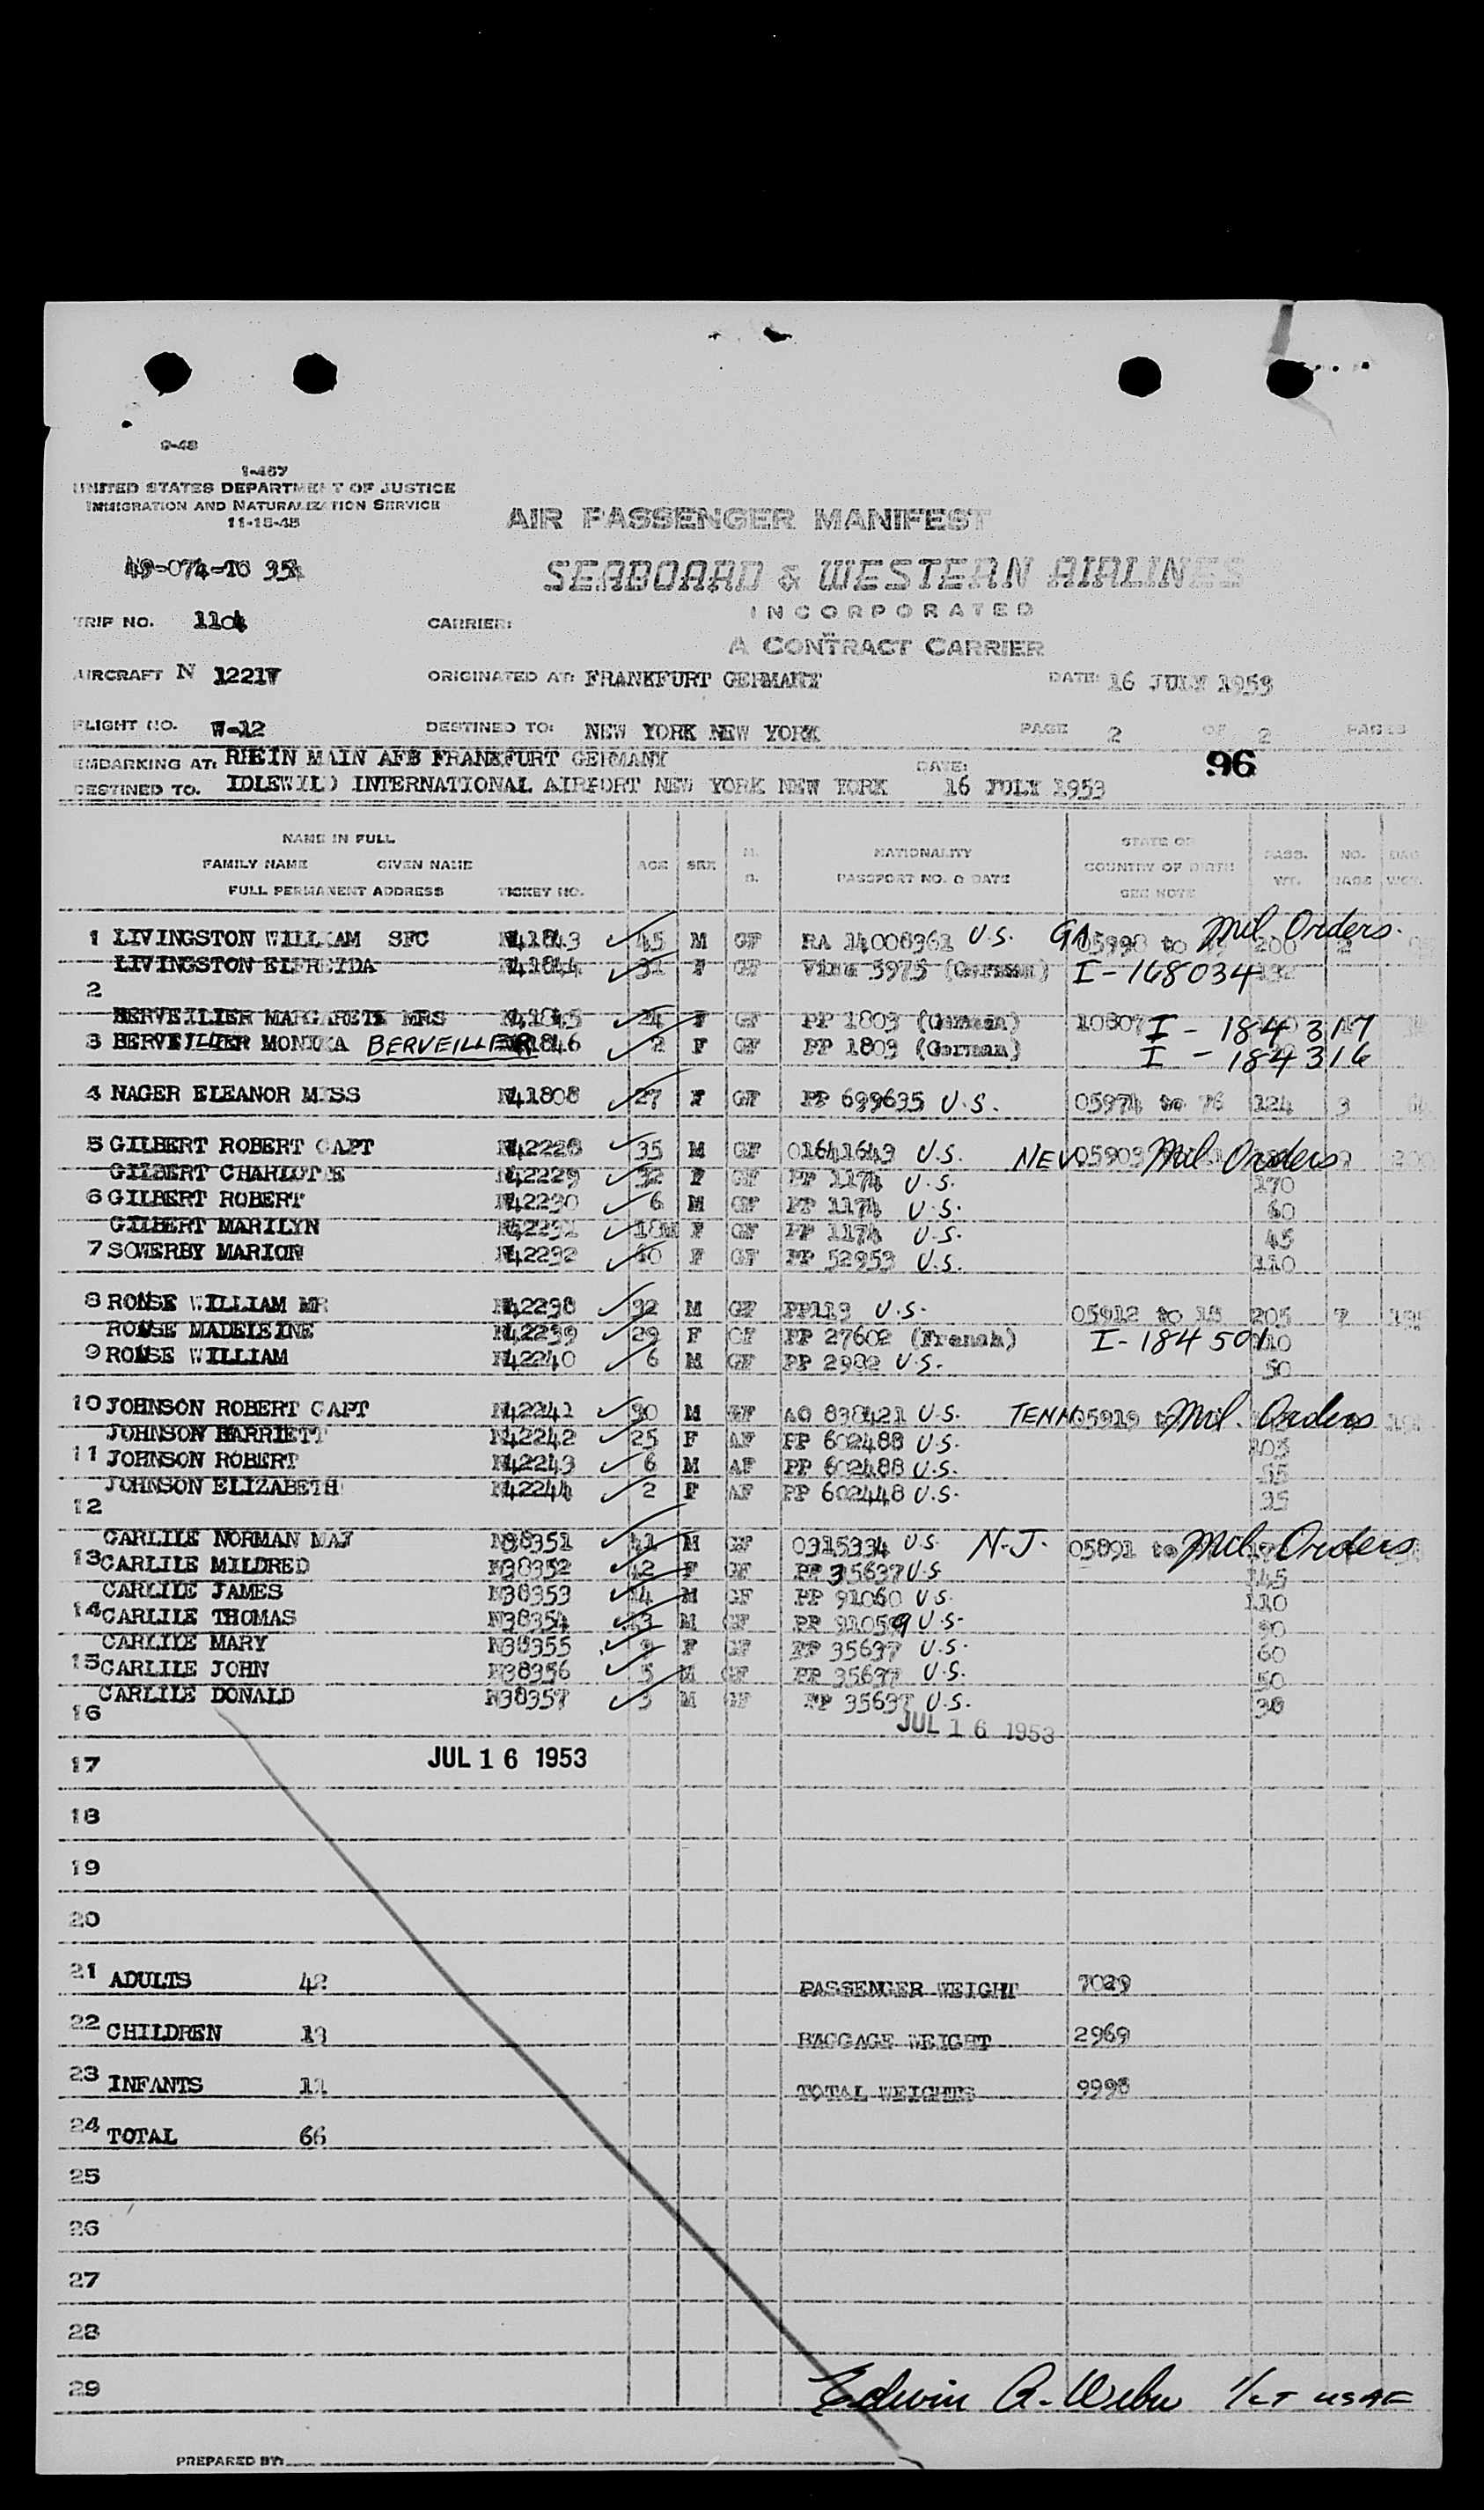 9-48
1-467
UNITED STATES DEPARTMENT OF JUSTICE
IMMIGRATION AND NATURALIZATION SERVICE
11-15-48
AIR PASSENGER MANIFEST
49-074-TO
SEABOARD & WESTERN AIRLINES
INCORPORATED
A CONTRACT CARRIER
TRIP NO. 1104 CARRIER:
AIRCRAFT N 1221V ORIGINATED AT: FRANKFURT GERMANY DATE: 16 JULY 1953
FLIGHT NO. W-12 DESTINED TO: NEW YORK NEW YORK PAGE 2 OF 2 PAGES
EMBARKING AT: RHEIN MAIN AFB FRANKFURT GERMANY DATE: 96
DESTINED TO. IDLEWILD INTERNATIONAL AIRPORT NEW YORK NEW YORK 16 JULY 1953
NAME IN FULL
FAMILY NAME GIVEN NAME
FULL PERMANENT ADDRESS TICKET NO. AGE SEX NATIONALITY PASSPORT NO. & DATE STATE OR COUNTRY OF BIRTH SEE NOTE PASS. WT. NO. BAGS BAG WGT.
1 LIVINGSTON WILLIAM SFC N41843 45 M GF RA 14008361 U.S. GA 05998 to Mil Orders. 200 2
LIVINGSTON ELFREIDA N41844 31 F GF Visa 5975 (German) I-168034 132
2
BERVEILIER MARGARETE MRS N41845 24 F GF PP 1803 (German) 10807 I-184317
3 BERVEILIER MONIKA BERVEILLER N41846 2 F GF PP 1803 (German) I-184316
4 NAGER ELEANOR MISS N41808 27 F GF PP 699635 U.S. 05974 to 76 124 3
5 GILBERT ROBERT CAPT N42228 35 M GF 01641643 U.S. NEV 05903 Mil Orders
GILBERT CHARLOTTE N42229 32 F GF PP 1174 U.S. 170
6 GILBERT ROBERT N42230 6 M GF PP 1174 U.S. 60
GILBERT MARILYN N42231 18M F GF PP 1174 U.S. 45
7 SOWERBY MARION N42232 F GF PP 52953 U.S. 110
8 ROUSE WILLIAM MR N42238 32 M GF PP113 U.S. 05912 to 18 205 7
ROUSE MADELEINE N42239 29 F GF PP 27602 (French) I-184501 110
9 ROUSE WILLIAM N42240 6 M GF PP 2982 U.S. 50
10 JOHNSON ROBERT CAPT N42241 30 M AF AO 838421 U.S. TENN 05919 Mil. Orders
JOHNSON HARRIETT N42242 25 F AF PP 602488 U.S. 105
11 JOHNSON ROBERT N42243 6 M AF PP 602488 U.S. 55
JOHNSON ELIZABETH N42244 2 F AF PP 602448 U.S. 35
12
CARLILE NORMAN MAJ N38351 41 M GF 0315334 U.S. N.J. 05891 to Mil Orders
13 CARLILE MILDRED N38352 42 F GF PP 35637 U.S. 145
CARLILE JAMES N38353 14 M GF PP 91060 U.S. 110
14 CARLILE THOMAS N38354 13 M GF PP 91059 U.S. 90
CARLILE MARY N38355 9 F GF PP 35637 U.S. 60
15 CARLILE JOHN N38356 5 M GF PP 35637 U.S. 50
CARLILE DONALD N38357 3 M GF PP 35637 U.S. 38
16
JUL 16 1953
17 JUL 16 1953
18
19
20
21 ADULTS 42 PASSENGER WEIGHT 7029
22 CHILDREN 13 BAGGAGE WEIGHT 2969
23 INFANTS 11 TOTAL WEIGHTS 9998
24 TOTAL 66
25
26
27
28
29 Edwin A. Weber 1/LT USAF
PREPARED BY: